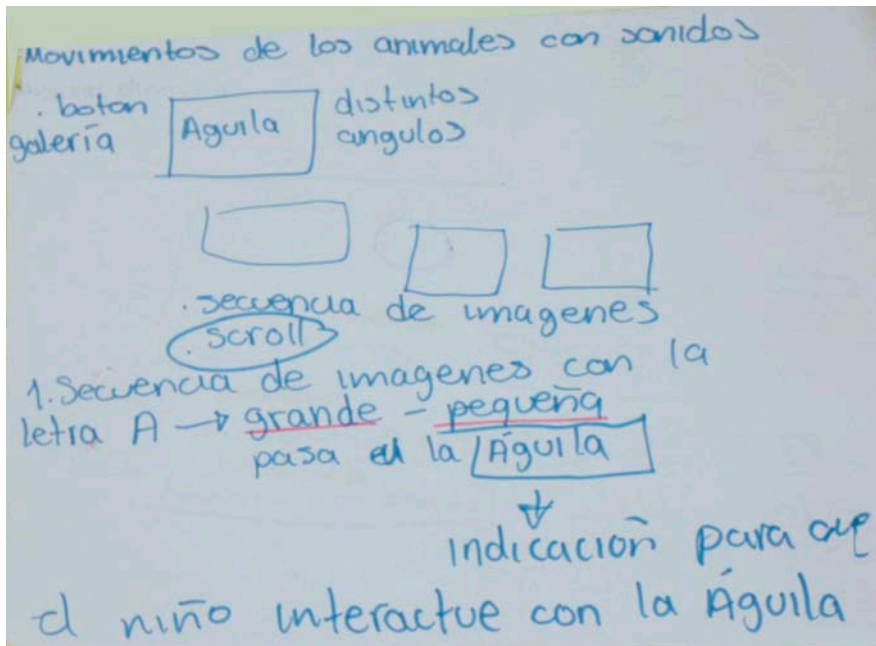 Movimientos de los animales con sonidos
. boton
galería
Aguila
distintos
angulos
. secuencia de imagenes
. scroll
1. Secuencia de imagenes con la
letra A → grande - pequeña
pasa la Águila
indicación para que
el niño interactue con la Águila